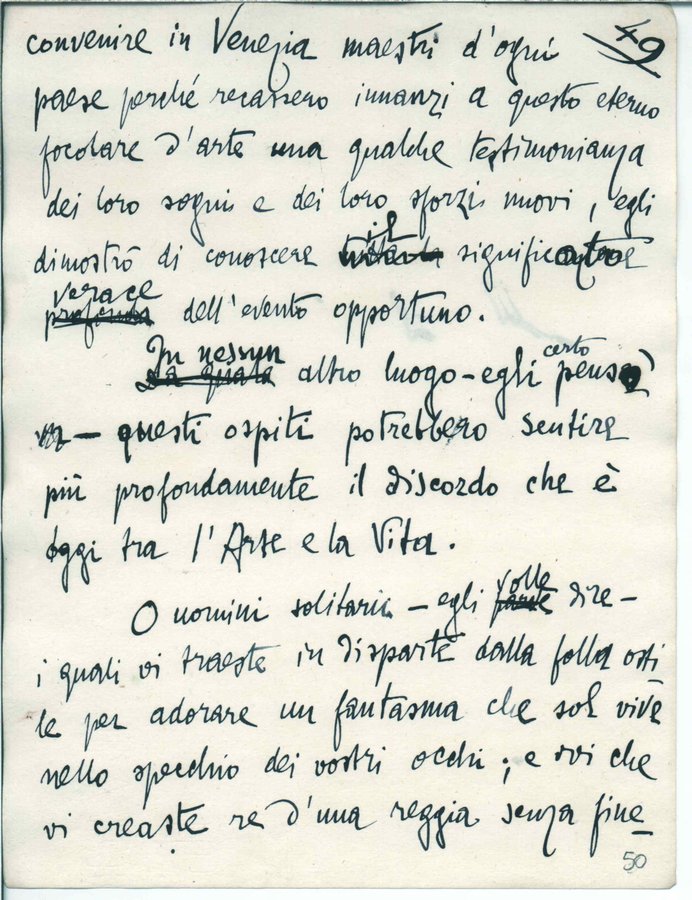 49
convenire in Venezia maestri d'ogni
paese perché recassero innanzi a questo eterno
focolare d'arte una qualche testimonianza
dei loro sogni e dei loro sforzi nuovi, egli
dimostrò di conoscere il significato
verace dell'evento opportuno.
In nessun altro luogo - egli certo pensò
- questi ospiti potrebbero sentire
più profondamente il discordo che è
oggi tra l'Arte e la Vita.
O uomini solitarii - egli volle dire -
i quali vi traeste in disparte dalla folla osti
le per adorare un fantasma che sol vive
nello specchio dei vostri occhi; e voi che
vi creaste re d'una reggia senza fine
50